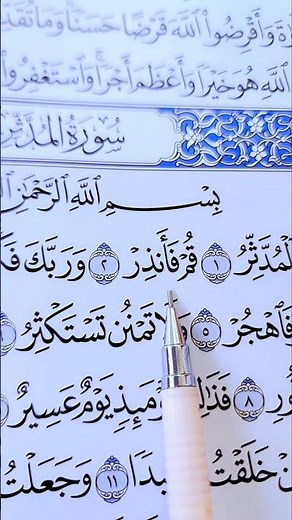 وَأَقْرِضُوا۟ ٱللَّهَ قَرْضًا حَسَنًا ۚ وَمَا تُقَدِّ
ٱللَّهِ هُوَ خَيْرًا وَأَعْظَمَ أَجْرًا ۚ وَٱسْتَغْفِرُوا۟
سُورَةُ المُدَّثِّرِ
بِسْمِ ٱللَّهِ ٱلرَّحْمَٰنِ
ٱلْمُدَّثِّرُ ١ قُمْ فَأَنذِرْ ٢ وَرَبَّكَ
فَٱهْجُرْ ٥ وَلَا تَمْنُن تَسْتَكْثِرُ
٨ يَوْمٌ عَسِيرٌ
خَلَقْتُ ١١ وَجَعَلْتُ